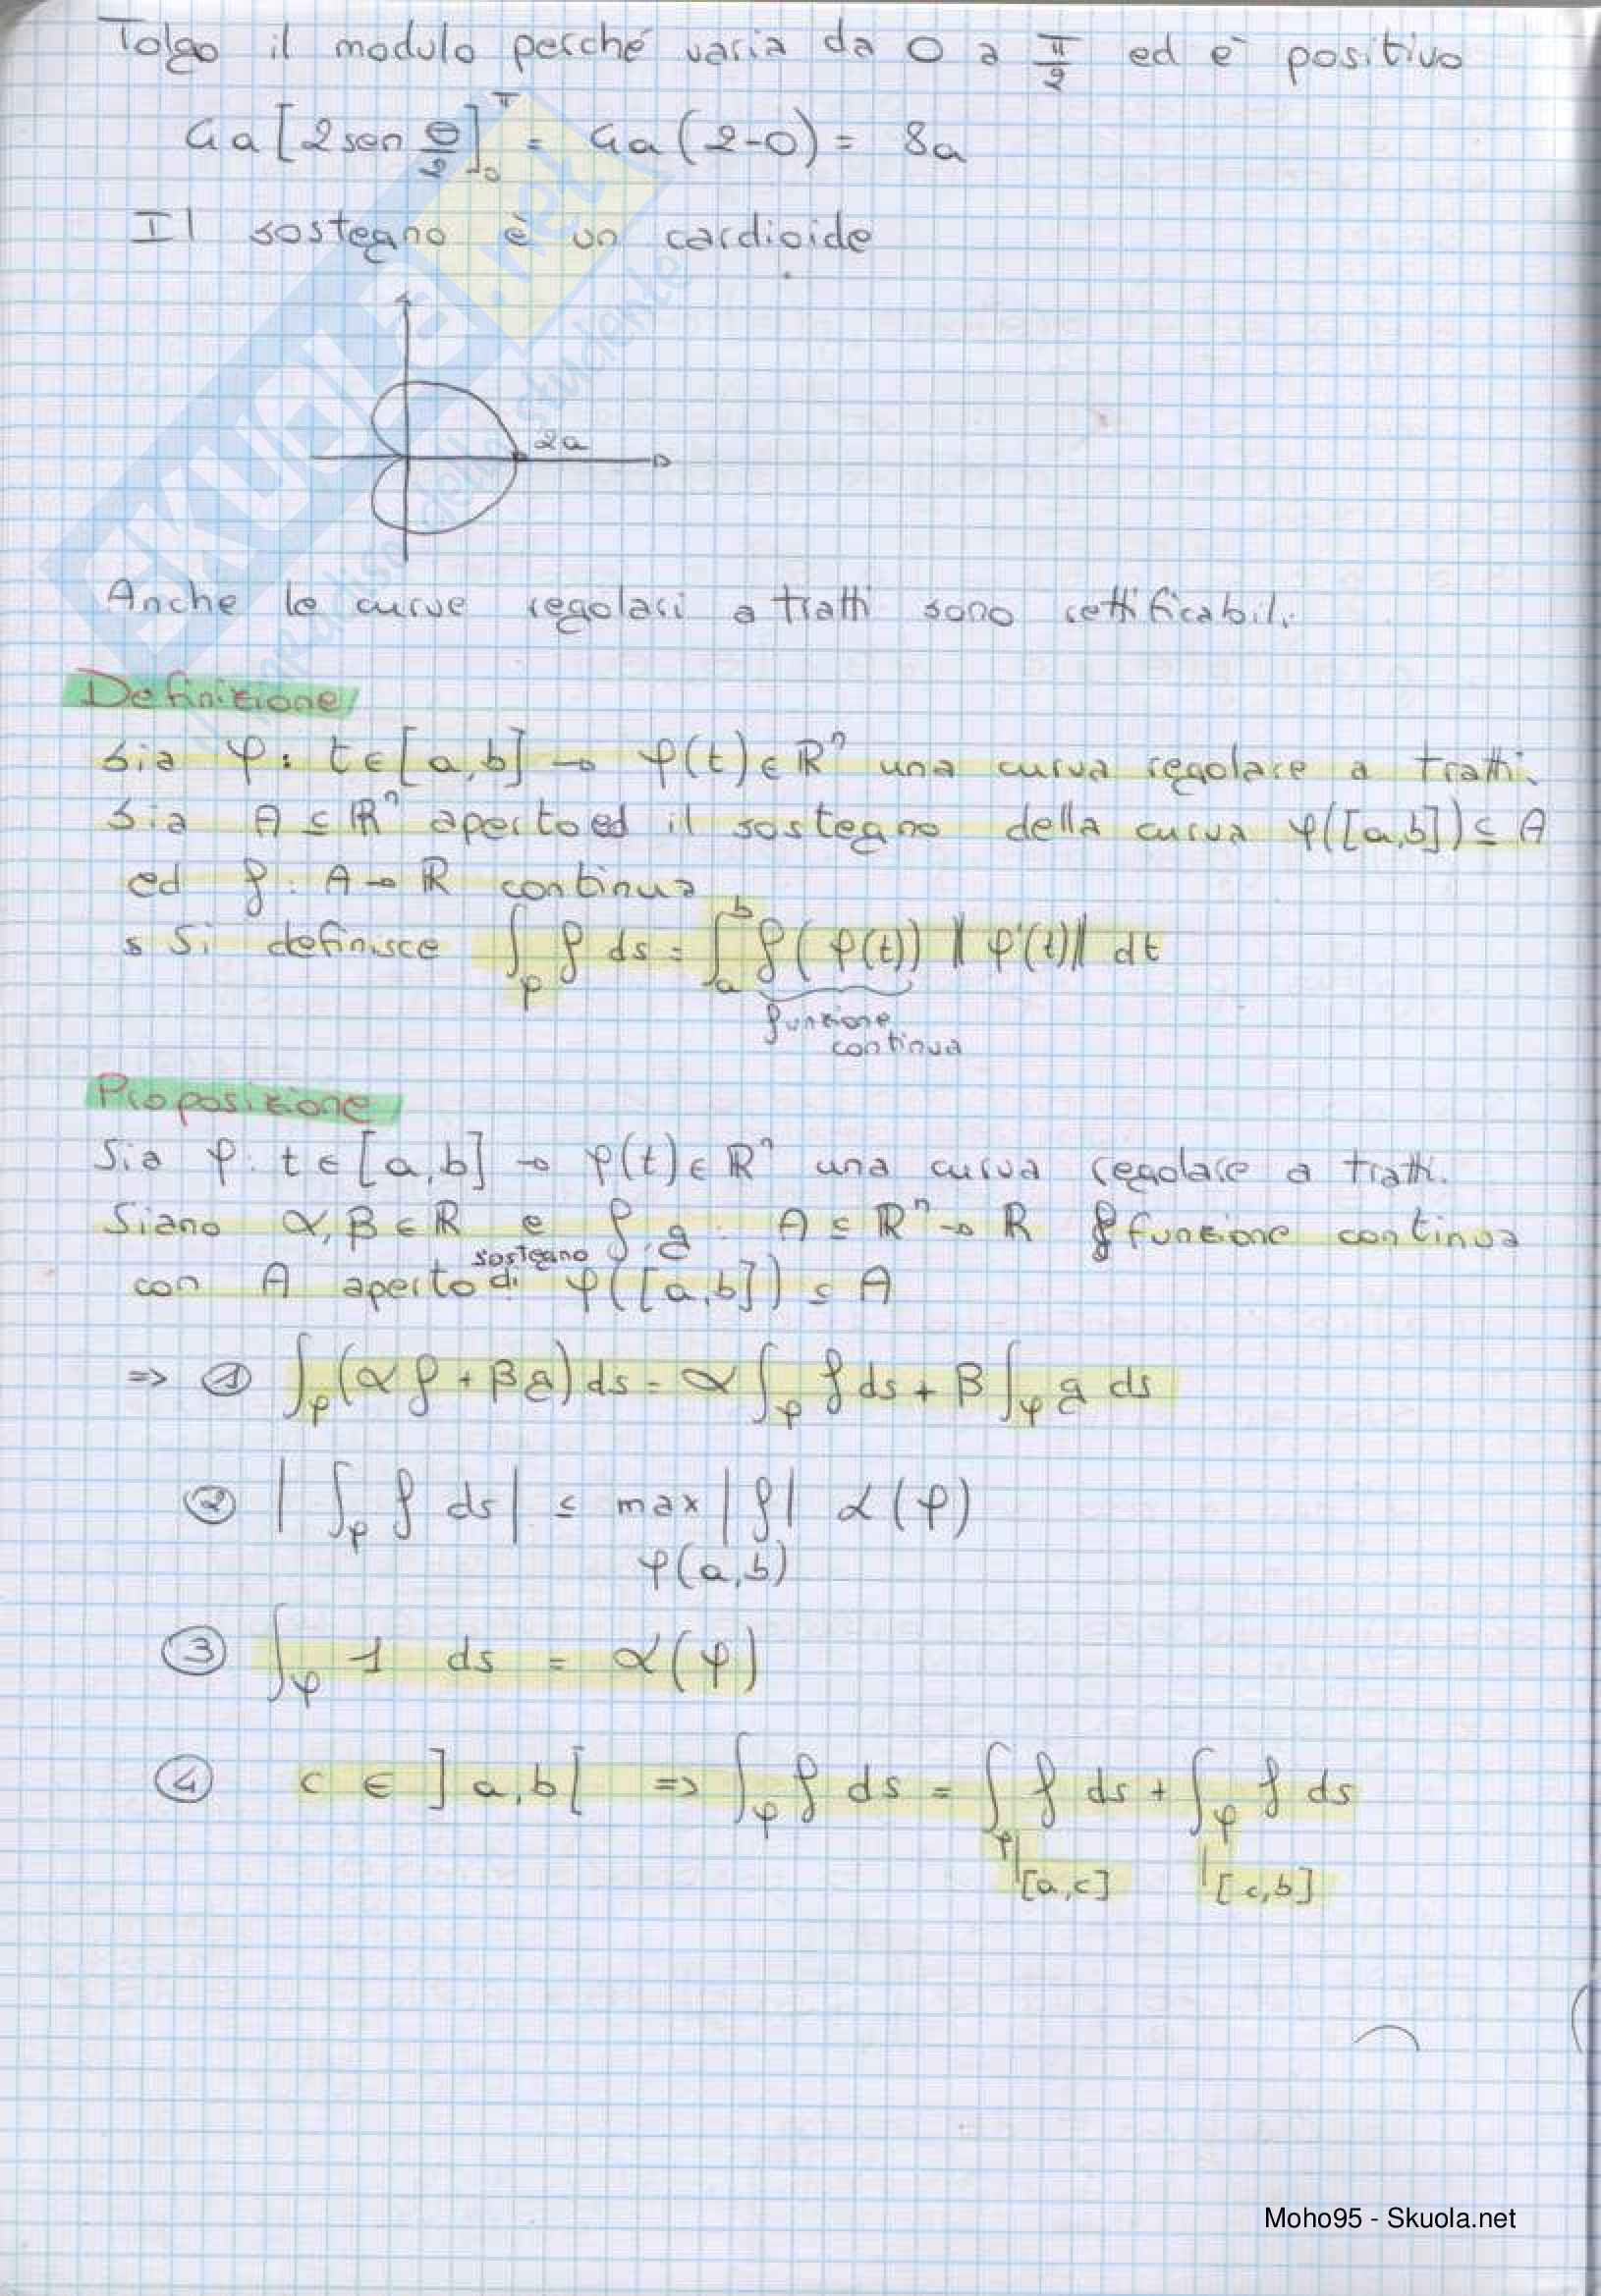 Tolgo il modulo perché varia da 0 a π/2 ed è positivo
4a [2 sen θ/2]₀^π = 4a (2-0) = 8a
Il sostegno è un cardioide
2a
Anche le curve regolari a tratti sono rettificabili
Definizione
Sia φ: t∈[a,b] → φ(t)∈ℝⁿ una curva regolare a tratti.
Sia A ⊆ ℝⁿ aperto ed il sostegno della curva φ([a,b]) ⊆ A
ed f: A → ℝ continua
Si definisce ∫_φ f ds = ∫_a^b f(φ(t)) ‖φ'(t)‖ dt
funzione
continua
Proposizione
Sia φ: t∈[a,b] → φ(t)∈ℝⁿ una curva regolare a tratti.
Siano α,β∈ℝ e f,g: A ⊆ ℝⁿ → ℝ funzione continua
sostegno
con A aperto di φ([a,b]) ⊆ A
=> ① ∫_φ (αf + βg) ds = α ∫_φ f ds + β ∫_φ g ds
② | ∫_φ f ds | ≤ max |f| α(φ)
φ(a,b)
③ ∫_φ 1 ds = α(φ)
④ c ∈ ]a,b[ => ∫_φ f ds = ∫_φ|[a,c] f ds + ∫_φ|[c,b] f ds
Moho95 - Skuola.net
SKUOLA.net
il paradiso dello studente